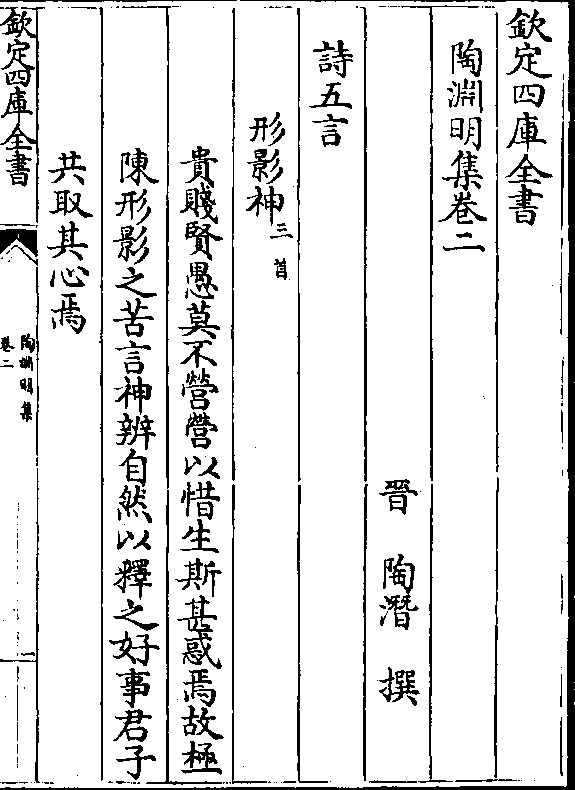 欽定四庫全書
陶淵明集卷二
晉　陶潛　撰
詩五言
形影神三首
貴賤賢愚莫不營營以惜生斯甚惑焉故極
陳形影之苦言神辨自然以釋之好事君子
共取其心焉
欽定四庫全書
陶淵明集
卷二